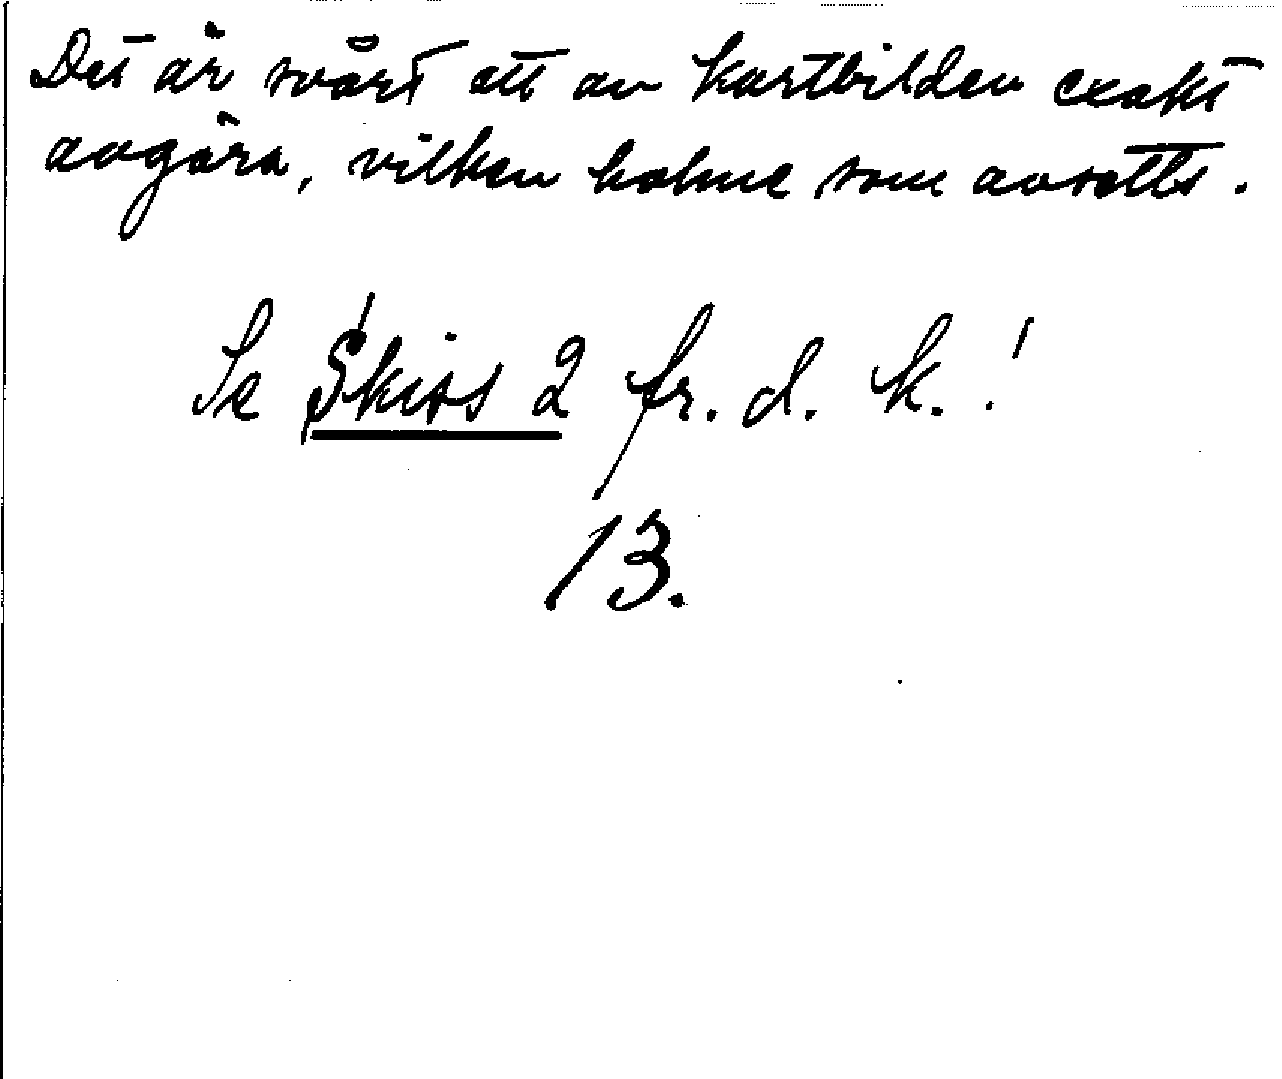 Det är svårt att av kartbilden exakt
avgöra, vilken holme som avsetts.
Se Skiss 2 fr. d. k.!
13.